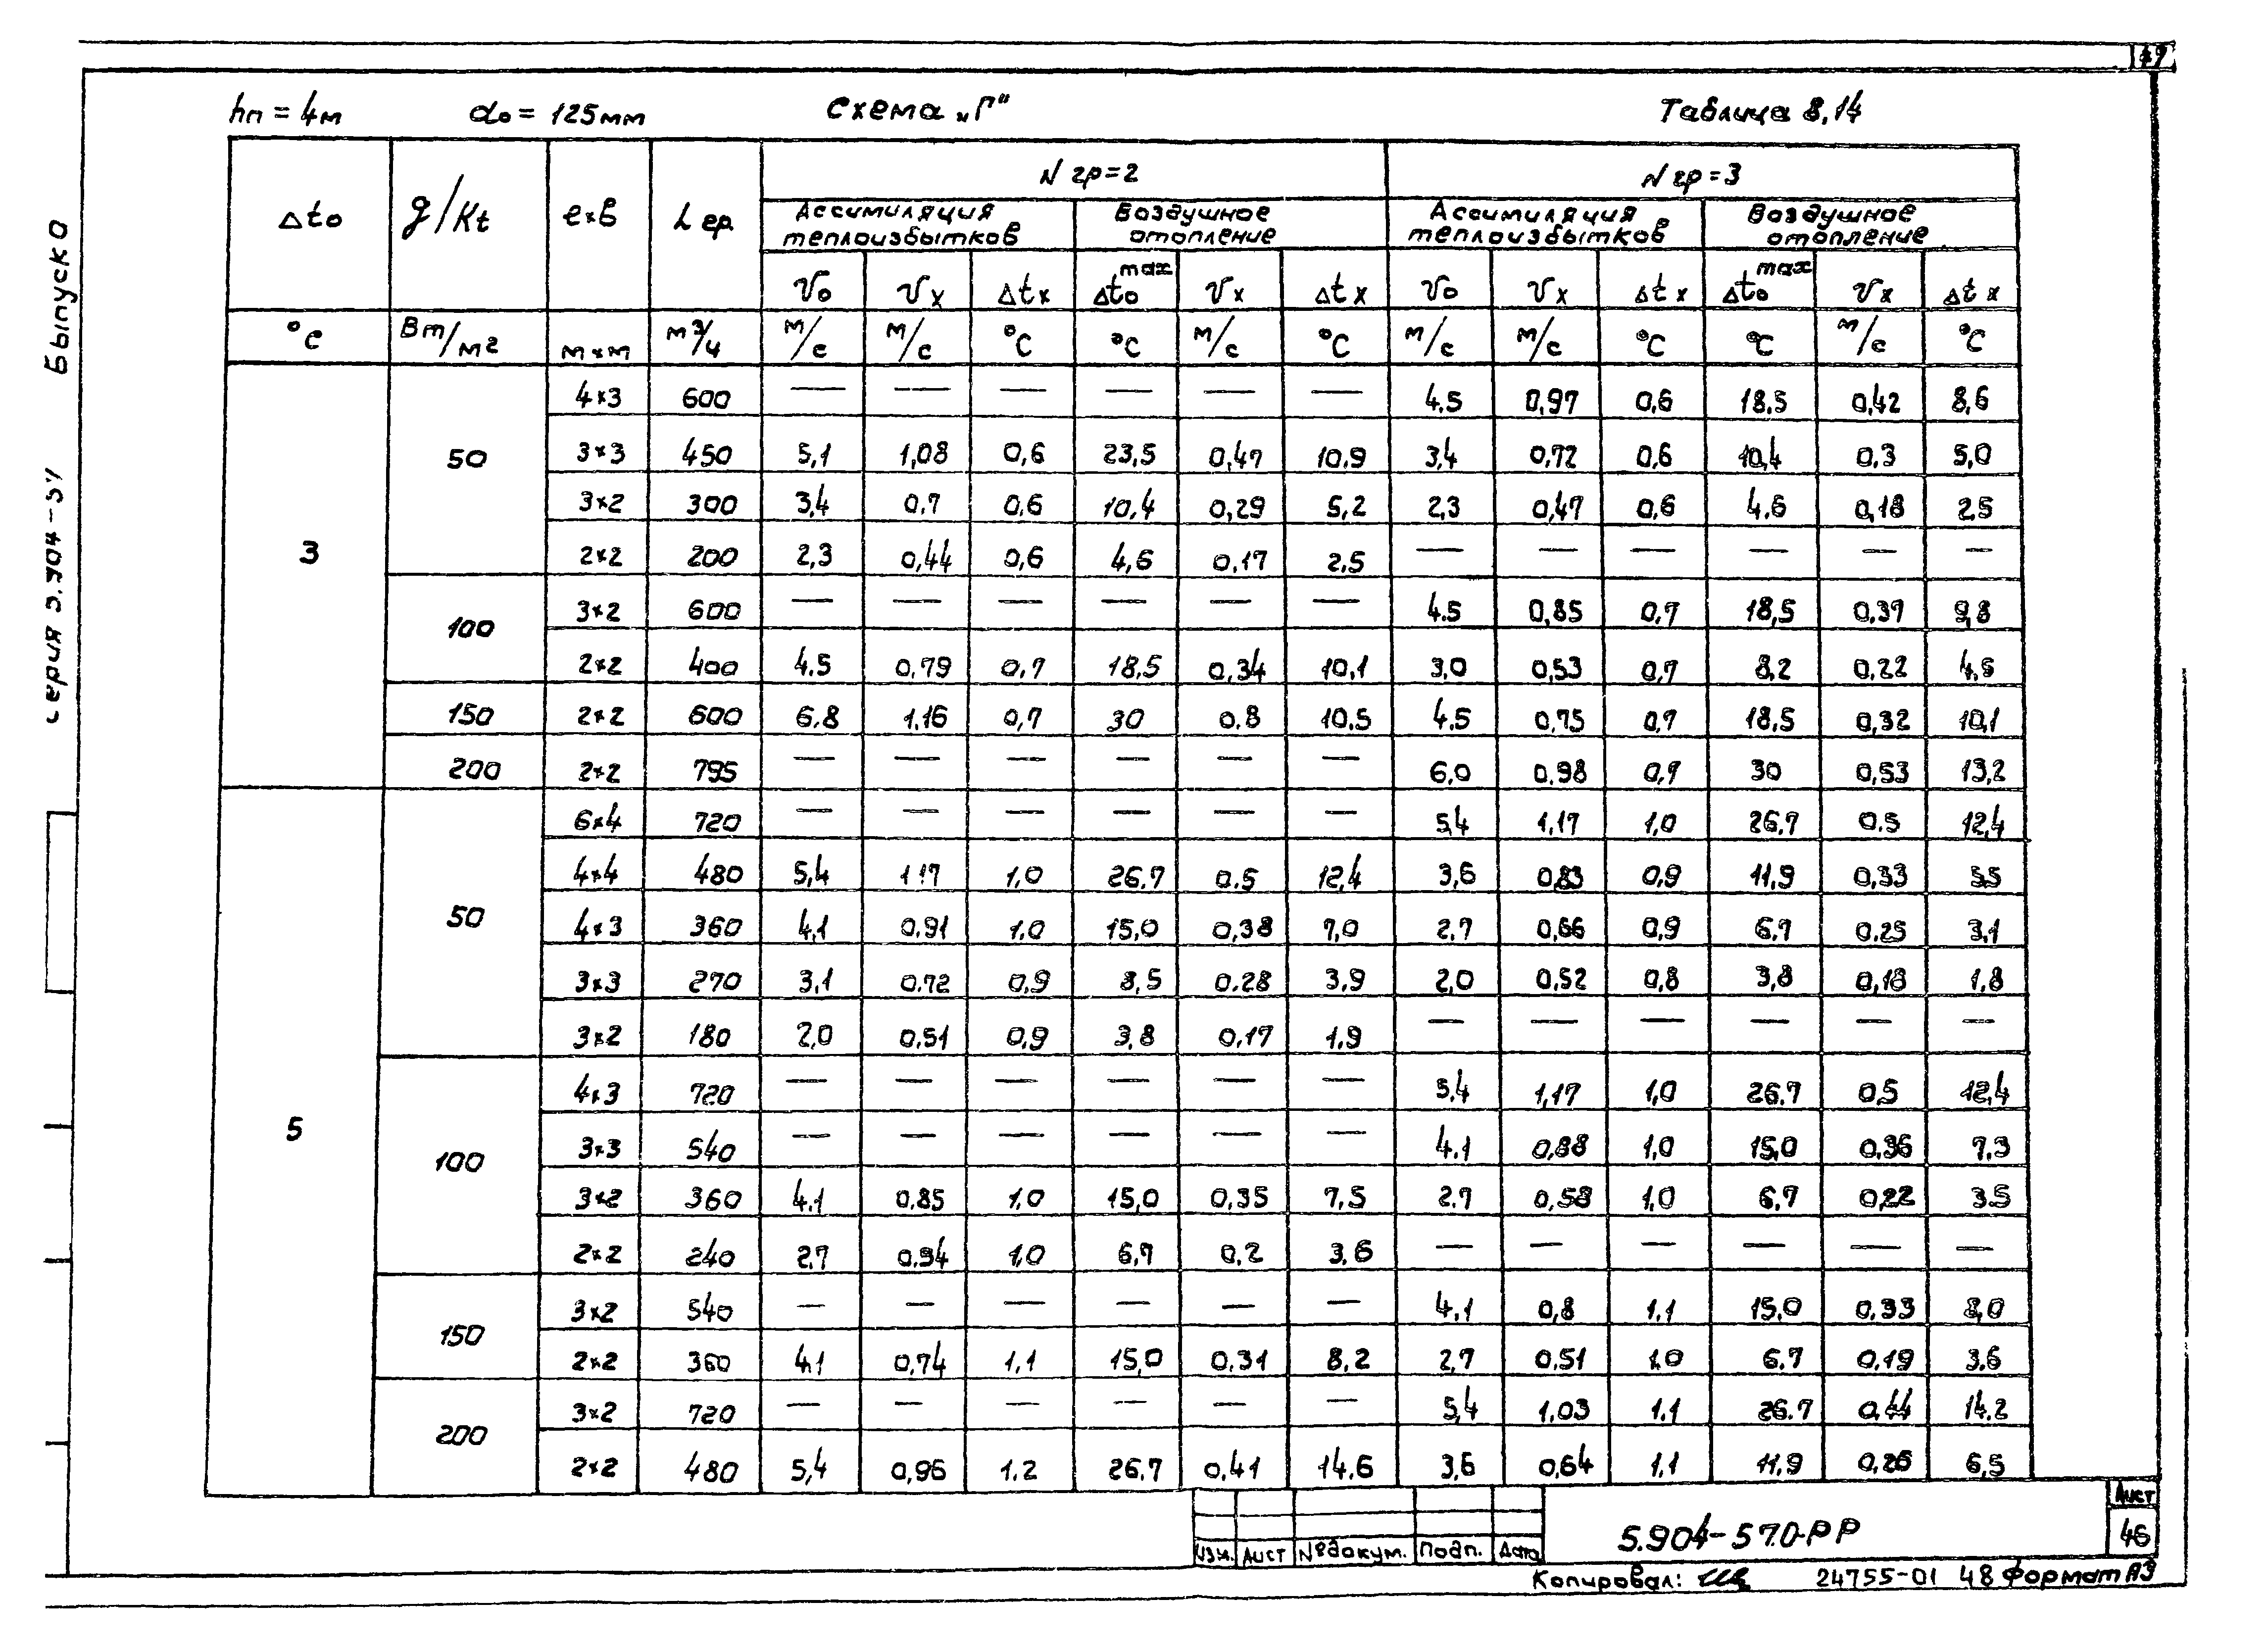 49
hп = 4м dо = 125мм Схема „Г" Таблица 8.14
Δtо q/Kt ℓ×в Lер. Nгр=2 Nгр=3
Ассимиляция теплоизбытков Воздушное отопление Ассимиляция теплоизбытков Воздушное отопление
Vо Vx Δtx Δtо max Vx Δtx Vо Vx Δtx Δtо max Vx Δtx
°С Вт/м² м×м м³/ч м/с м/с °С °С м/с °С м/с м/с °С °С м/с °С
3 50 4×3 600 — — — — — — 4.5 0,97 0,6 18.5 0,42 8,6
3×3 450 5,1 1,08 0,6 23,5 0,47 10.9 3,4 0,72 0,6 10,4 0,3 5,0
3×2 300 3,4 0,7 0,6 10,4 0,29 5,2 2,3 0,47 0,6 4,6 0,18 2,5
2×2 200 2,3 0,44 0,6 4,6 0,17 2,5 — — — — — —
100 3×2 600 — — — — — — 4.5 0,85 0,7 18,5 0,37 9,8
2×2 400 4.5 0,79 0,7 18,5 0,34 10,1 3,0 0,53 0,7 8,2 0,22 4,5
150 2×2 600 6.8 1.16 0,7 30 0.8 10.5 4.5 0,75 0,7 18,5 0,32 10,1
200 2×2 795 — — — — — — 6,0 0.98 0,7 30 0,53 13,2
5 50 6×4 720 — — — — — — 5,4 1,17 1,0 26,7 0.5 12,4
4×4 480 5,4 1,17 1,0 26.7 0.5 12,4 3,6 0,83 0,9 11,9 0,33 5,5
4×3 360 4,1 0,91 1,0 15,0 0,38 7,0 2,7 0,66 0,9 6,7 0.25 3,1
3×3 270 3,1 0.72 0,9 8,5 0.28 3,9 2,0 0,52 0,8 3,8 0,18 1,8
3×2 180 2,0 0,51 0,9 3,8 0,17 1,9 — — — — — —
100 4×3 720 — — — — — — 5,4 1,17 1,0 26.7 0,5 12,4
3×3 540 — — — — — — 4.1 0,88 1,0 15,0 0,36 7,3
3×2 360 4.1 0,85 1,0 15,0 0,35 7,5 2.7 0,58 1,0 6,7 0,22 3.5
2×2 240 2.7 0.54 1,0 6,7 0,2 3.6 — — — — — —
150 3×2 540 — — — — — — 4.1 0,8 1.1 15.0 0,33 8,0
2×2 360 4,1 0,74 1,1 15,0 0.31 8,2 2,7 0.51 1.0 6.7 0.19 3.6
200 3×2 720 — — — — — — 5,4 1,03 1.1 26.7 0,44 14.2
2×2 480 5,4 0,96 1.2 26.7 0,41 14.6 3,6 0,64 1,1 11,9 0,26 6,5
серия 5.904-57 Выпуск 0
Изм. Лист №докум. Подп. Дата
5.904-57.0-РР
Лист
46
Копировал: 24755-01 48 Формат А3